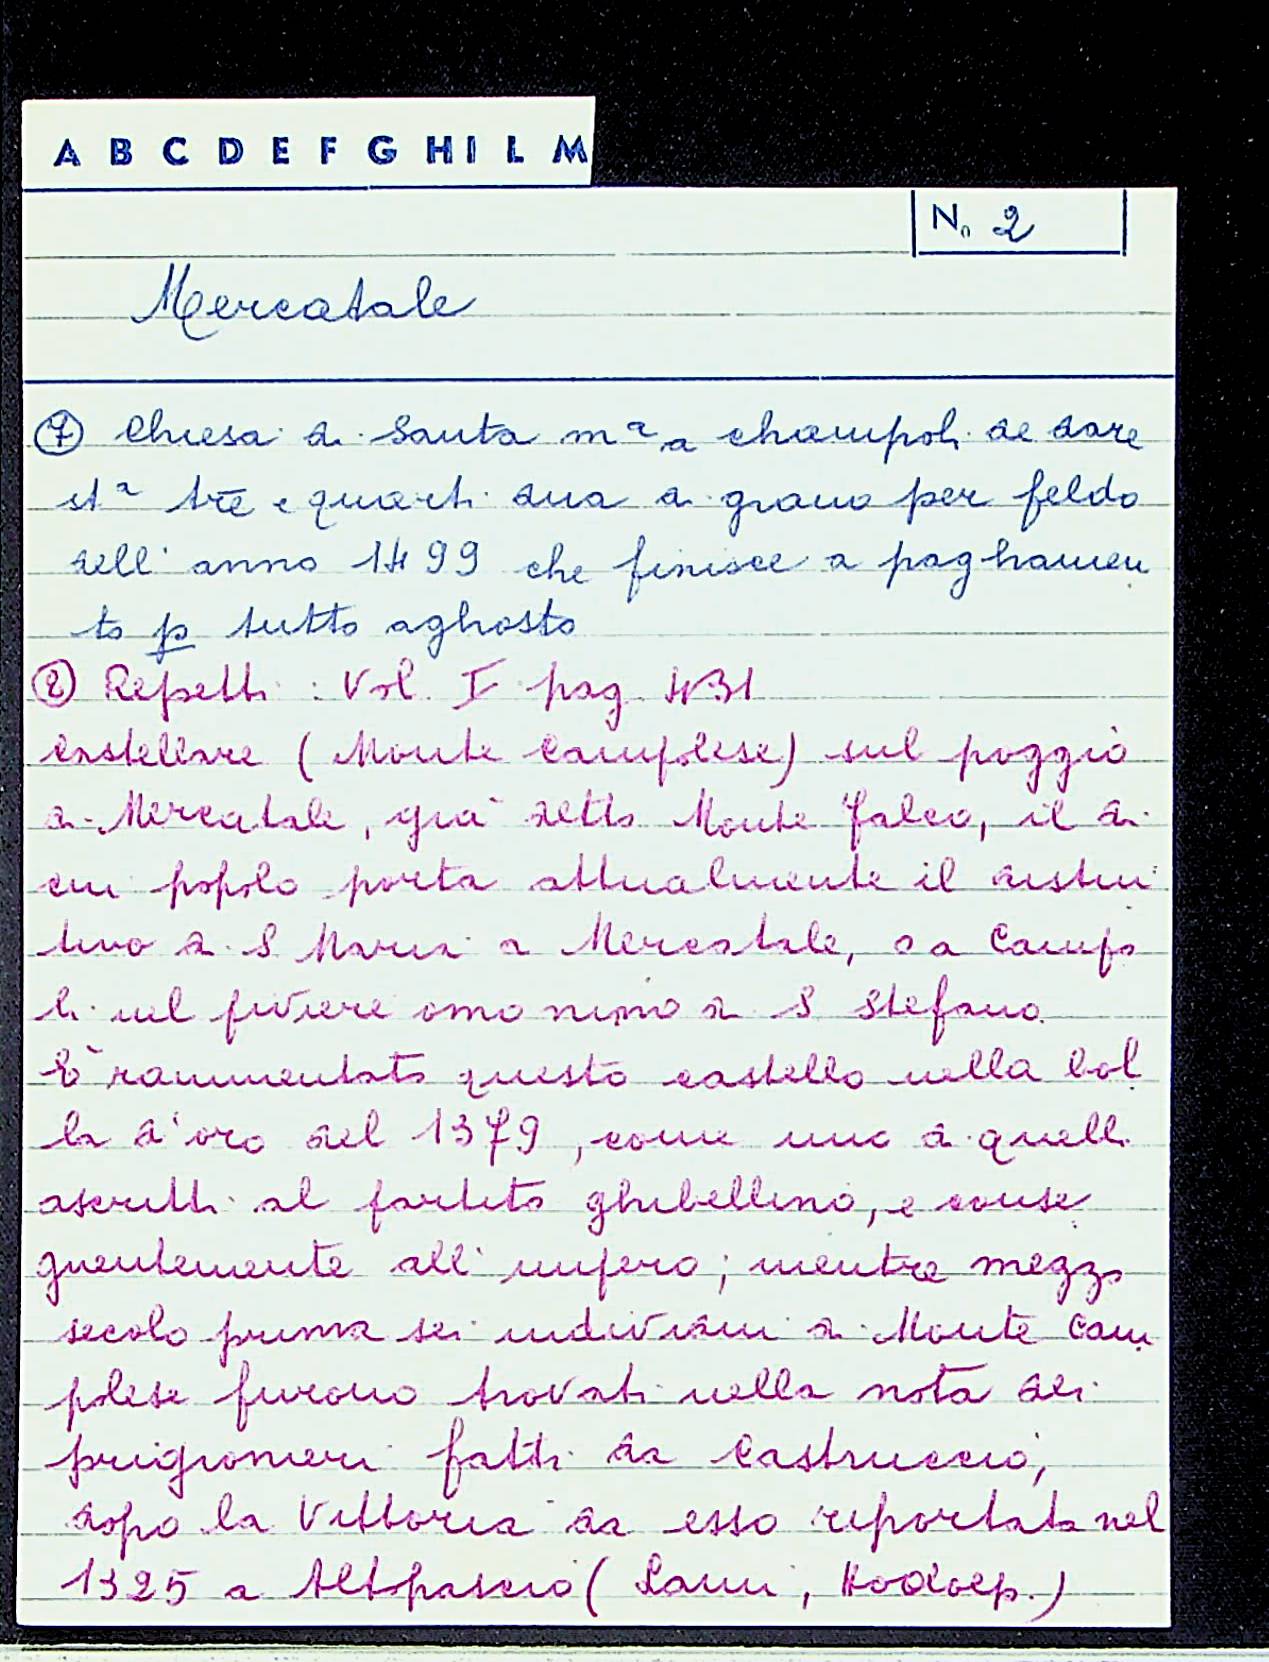 A B C D E F G H I L M
N. 2
Mercatale
⑦ Chiesa di Santa mª a champoli de dare
stª tre e quarti dua di grano per feldo
dell'anno 1499 che finisce a paghamen
to p tutto aghosto
⑧ Repetti: Vol. I pag 431
Castellare (Monte Campolese) sul poggio
di Mercatale, già detto Monte Falco, il di
cui popolo porta attualmente il distin
tivo di S Maria a Mercatale, o a Campo
li nel piviere omonimo di S Stefano
E' rammentato questo castello nella bol
la d'oro del 1379, come uno di quelli
ascritti al partito ghibellino, e conse
guentemente all'impero; mentre mezzo
secolo prima sei individui di Monte Cam
polese furono trovati nella nota dei
prigionieri fatti da Castruccio,
dopo la Vittoria da esso riportata nel
1325 a Altopascio (Lami, Hodoep.)